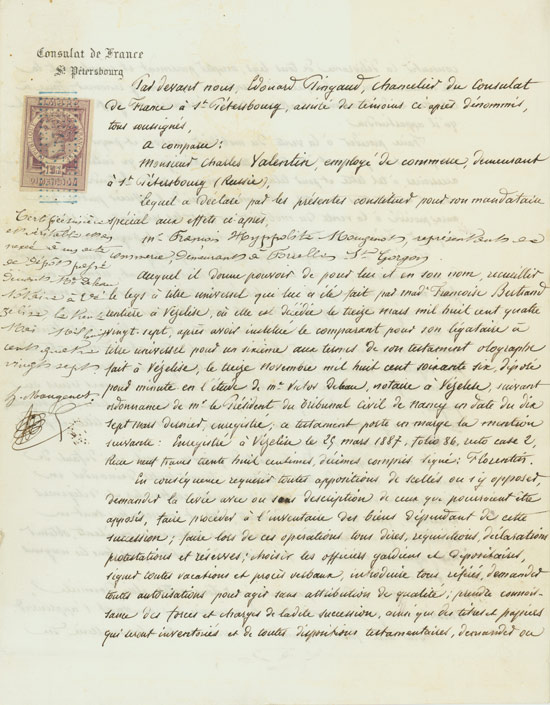 Consulat de France
St Pétersbourg
Par devant nous, Edouard Pingaud, chancelier du Consulat
de France à St Pétersbourg, assisté des témoins ci après dénommés,
tous soussignés,
A comparu:
Monsieur Charles Valentin, employé de commerce, demeurant
à St Pétersbourg (Russie),
lequel a déclaré par les présentes constituer pour son mandataire
spécial aux effets ci après
Mr. François Hyppolite Mougenot représentant de
commerce demeurant à
Auquel il donne pouvoir de pour lui et en son nom, recueillir
le legs à titre universel qui lui a été fait par Made Françoise Bertrand
rentière à Vézelise, où elle est décédée le treize mars mil huit cent quatre
vingt-sept, après avoir institué le comparant pour son légataire à
titre universel pour un sixième aux termes de son testament olographe
fait à Vézelise, le treize novembre mil huit cent soixante six, déposé
pour minute en l'étude de Me Victor notaire à Vézelise, suivant
ordonnance de Mr le Président du tribunal civil de Nancy en date du dix
sept mars dernier, enregistrée; ce testament porte en marge la mention
suivante: Enregistré à Vézelise le 25 mars 1887, folio 86, recto case 2,
Reçu neuf francs trente huit centimes, décimes compris signé: Florentin.
En conséquence requérir toutes appositions de scellés ou s'y opposer,
demander la levée avec ou sans description de ceux qui pourraient être
apposés, faire procéder à l'inventaire des biens dépendant de cette
succession; faire lors de ces opérations tous dires, réquisitions, déclarations
protestations et réserves; choisir les officiers gardiens et dépositaires,
signer toutes vacations et procès verbaux, introduire tous référés, demander
toutes autorisations pour agir sans attribution de qualité; prendre connais-
sance des forces et charges de ladite succession, ainsi que des titres et papiers
qui seront inventoriés et de toutes dispositions testamentaires, demander ou
Certifié sincère
et véritable
à un acte
de dépôt passé
devant Me
Notaire à
le
cent quatre
vingt sept
Mougenot